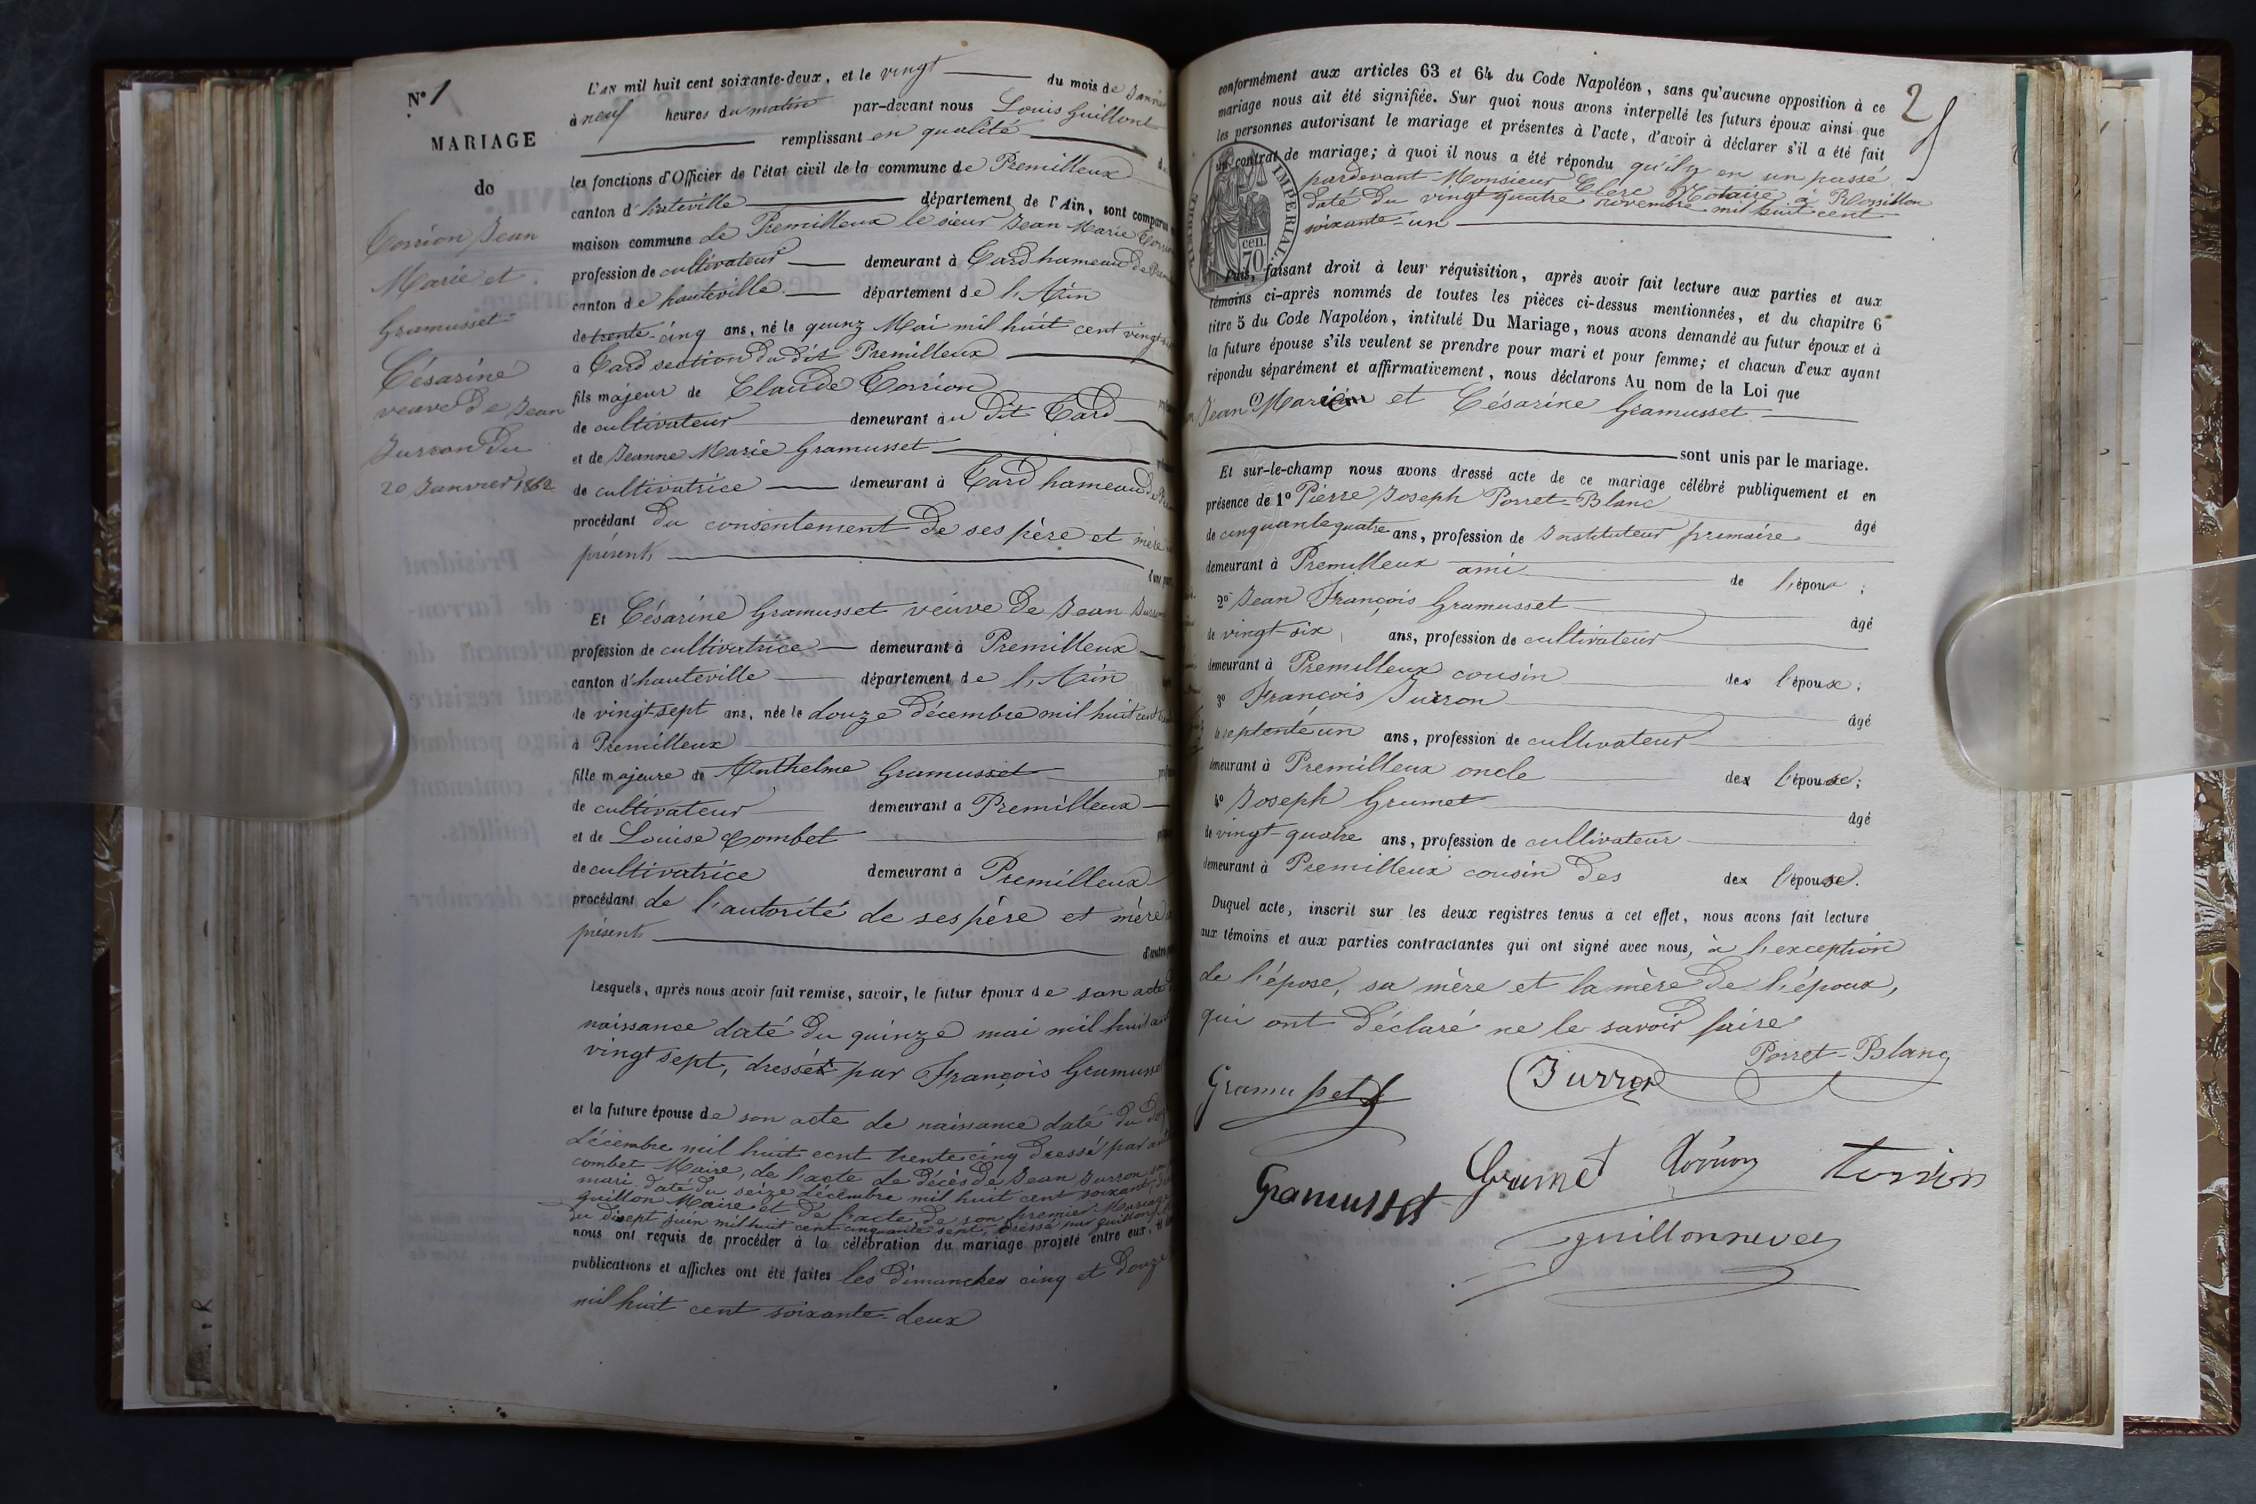 N° 1
MARIAGE
de
Corrion Jean
Marie et
Gramusset
Césarine
veuve de Jean
Jurron du
20 Janvier 1862
L'AN mil huit cent soixante-deux, et le vingt du mois de Janvier
à neuf heures du matin par-devant nous Louis Guillon
remplissant en qualité
les fonctions d'Officier de l'état civil de la commune de Premillieux
canton d'hauteville département de l'Ain, sont comparus
maison commune de Premillieux le sieur Jean Marie Corrion
profession de cultivateur demeurant à Card hameau de
canton de hauteville département de l'Ain
de trente-cinq ans, né le quinz Mai mil huit cent vingt
à Card section du dit Premillieux
fils majeur de Claude Corrion
de cultivateur demeurant au dit Card
et de Jeanne Marie Gramusset
de cultivatrice demeurant à Card hameau
procédant du consentement de ses père et mère
présents
d'une part
Et Césarine Gramusset veuve de Jean
profession de cultivatrice demeurant à Premillieux
canton d'hauteville département de l'Ain
de vingt sept ans, née le douze décembre mil huit cent
à Premillieux
fille majeure de Anthelme Gramusset
de cultivateur demeurant à Premillieux
et de Louise Combet
de cultivatrice demeurant à Premillieux
procédant de l'autorité de ses père et mère
présents
d'autre
Lesquels, après nous avoir fait remise, savoir, le futur époux de son acte
naissance daté du quinze mai mil huit
vingt sept, dressé par François Gramusset
et la future épouse de son acte de naissance daté du
décembre mil huit cent trente cinq dressé par
combet Maire, de l'acte de décès de Jean Jurron
mari daté du seize décembre mil huit cent soixante
guillon Maire et de l'acte de son premier Mariage
du dixsept juin mil huit cent cinquante sept, dressé par guillon
nous ont requis de procéder à la célébration du mariage projeté entre eux,
publications et affiches ont été faites les dimanches cinq et douze
mil huit cent soixante-deux
2
conformément aux articles 63 et 64 du Code Napoléon, sans qu'aucune opposition à ce
mariage nous ait été signifiée. Sur quoi nous avons interpellé les futurs époux ainsi que
les personnes autorisant le mariage et présentes à l'acte, d'avoir à déclarer s'il a été fait
un contrat de mariage; à quoi il nous a été répondu qu'il y en un passé
pardevant Monsieur Clerc Notaire à Rossillon
daté du vingt quatre novembre mil huit cent
soixante-un
TIMBRE IMPERIAL
70 cen.
Puis, faisant droit à leur réquisition, après avoir fait lecture aux parties et aux
témoins ci-après nommés de toutes les pièces ci-dessus mentionnées, et du chapitre 6
titre 5 du Code Napoléon, intitulé Du Mariage, nous avons demandé au futur époux et à
la future épouse s'ils veulent se prendre pour mari et pour femme; et chacun d'eux ayant
répondu séparément et affirmativement, nous déclarons Au nom de la Loi que
Jean Marie et Césarine Gramusset
sont unis par le mariage.
Et sur-le-champ nous avons dressé acte de ce mariage célébré publiquement et en
présence de 1° Pierre Joseph Porret-Blanc
de cinquante quatre ans, profession de Instituteur primaire âgé
demeurant à Premillieux ami de l'époux ;
2° Jean François Gramusset
âgé
de vingt-six ans, profession de cultivateur
demeurant à Premillieux cousin de l'épouse;
3° François Jurron
âgé
de septante un ans, profession de cultivateur
demeurant à Premillieux oncle de l'épouse;
4° Joseph Grumet
âgé
de vingt-quatre ans, profession de cultivateur
demeurant à Premillieux cousin des de l'épouse.
Duquel acte, inscrit sur les deux registres tenus à cet effet, nous avons fait lecture
aux témoins et aux parties contractantes qui ont signé avec nous, à l'exception
de l'épose, sa mère et la mère de l'époux,
qui ont déclaré ne le savoir faire
Porret-Blanc
Gramusset Jurron
Gramusset Grumet Corrion Corrion
guillon